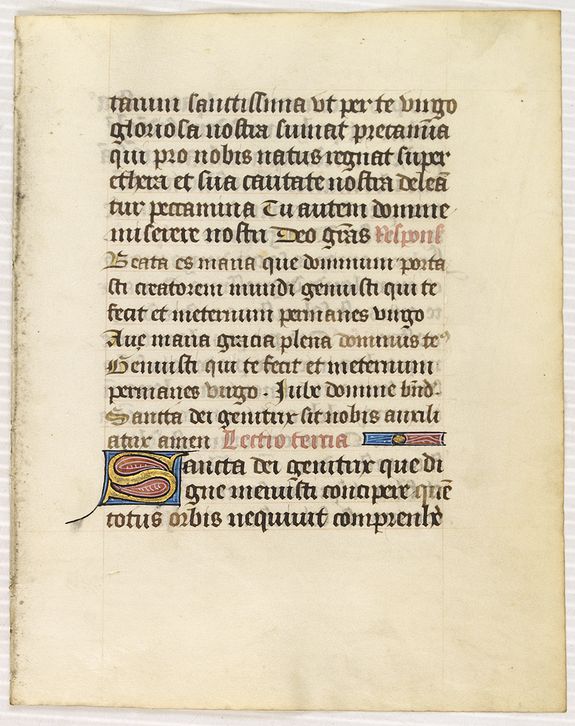 tarum sanctissima vt per te virgo
gloriosa nostra sumat precamina
qui pro nobis natus regnat super
ethera et sua caritate nostra deleā
tur peccamina Tu autem domine
miserere nostri Deo grās Respons
Beata es maria que dominum porta
sti creatorem mundi genuisti qui te
fecit et ineternum permanes virgo
Aue maria gracia plena dominus te
Genuisti qui te fecit et ineternum
permanes virgo . Jube domine bñd.
Sancta dei genitrix sit nobis auxili
atrix amen Lectio tercia
Sancta dei genitrix que di
gne meruisti concipere quē
totus orbis nequiuit comprenhē